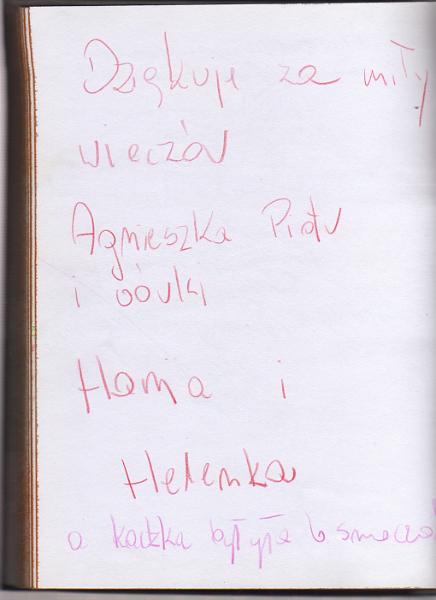 Dziękuje za miły
wieczór
Agnieszka Piotr
i córki
Hania i
Helenka
a kaczka b